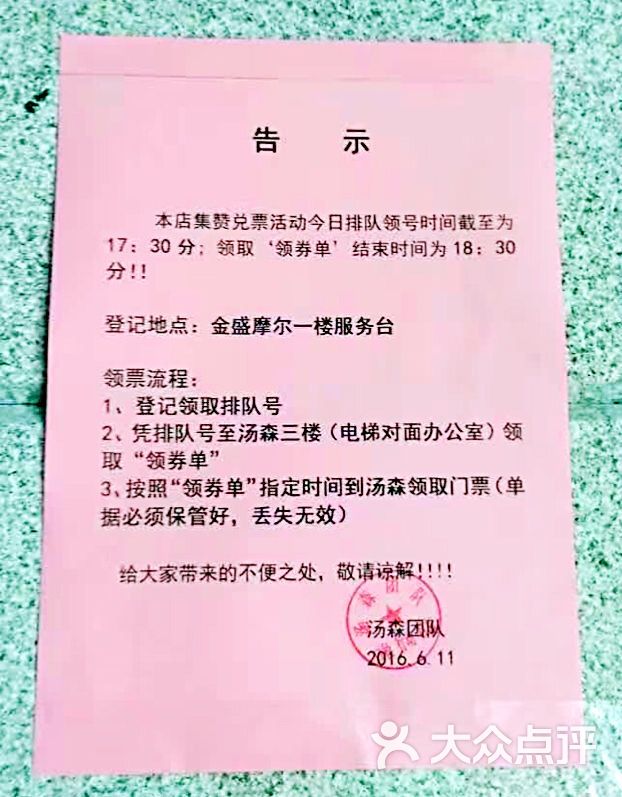 告 示
本店集赞兑票活动今日排队领号时间截至为
17：30分；领取‘领券单’结束时间为18：30
分!!
登记地点：金盛摩尔一楼服务台
领票流程：
1、登记领取排队号
2、凭排队号至汤森三楼（电梯对面办公室）领
取“领券单”
3、按照“领券单”指定时间到汤森领取门票（单
据必须保管好，丢失无效）
给大家带来的不便之处，敬请谅解!!!!
汤森团队
2016.6.11
大众点评